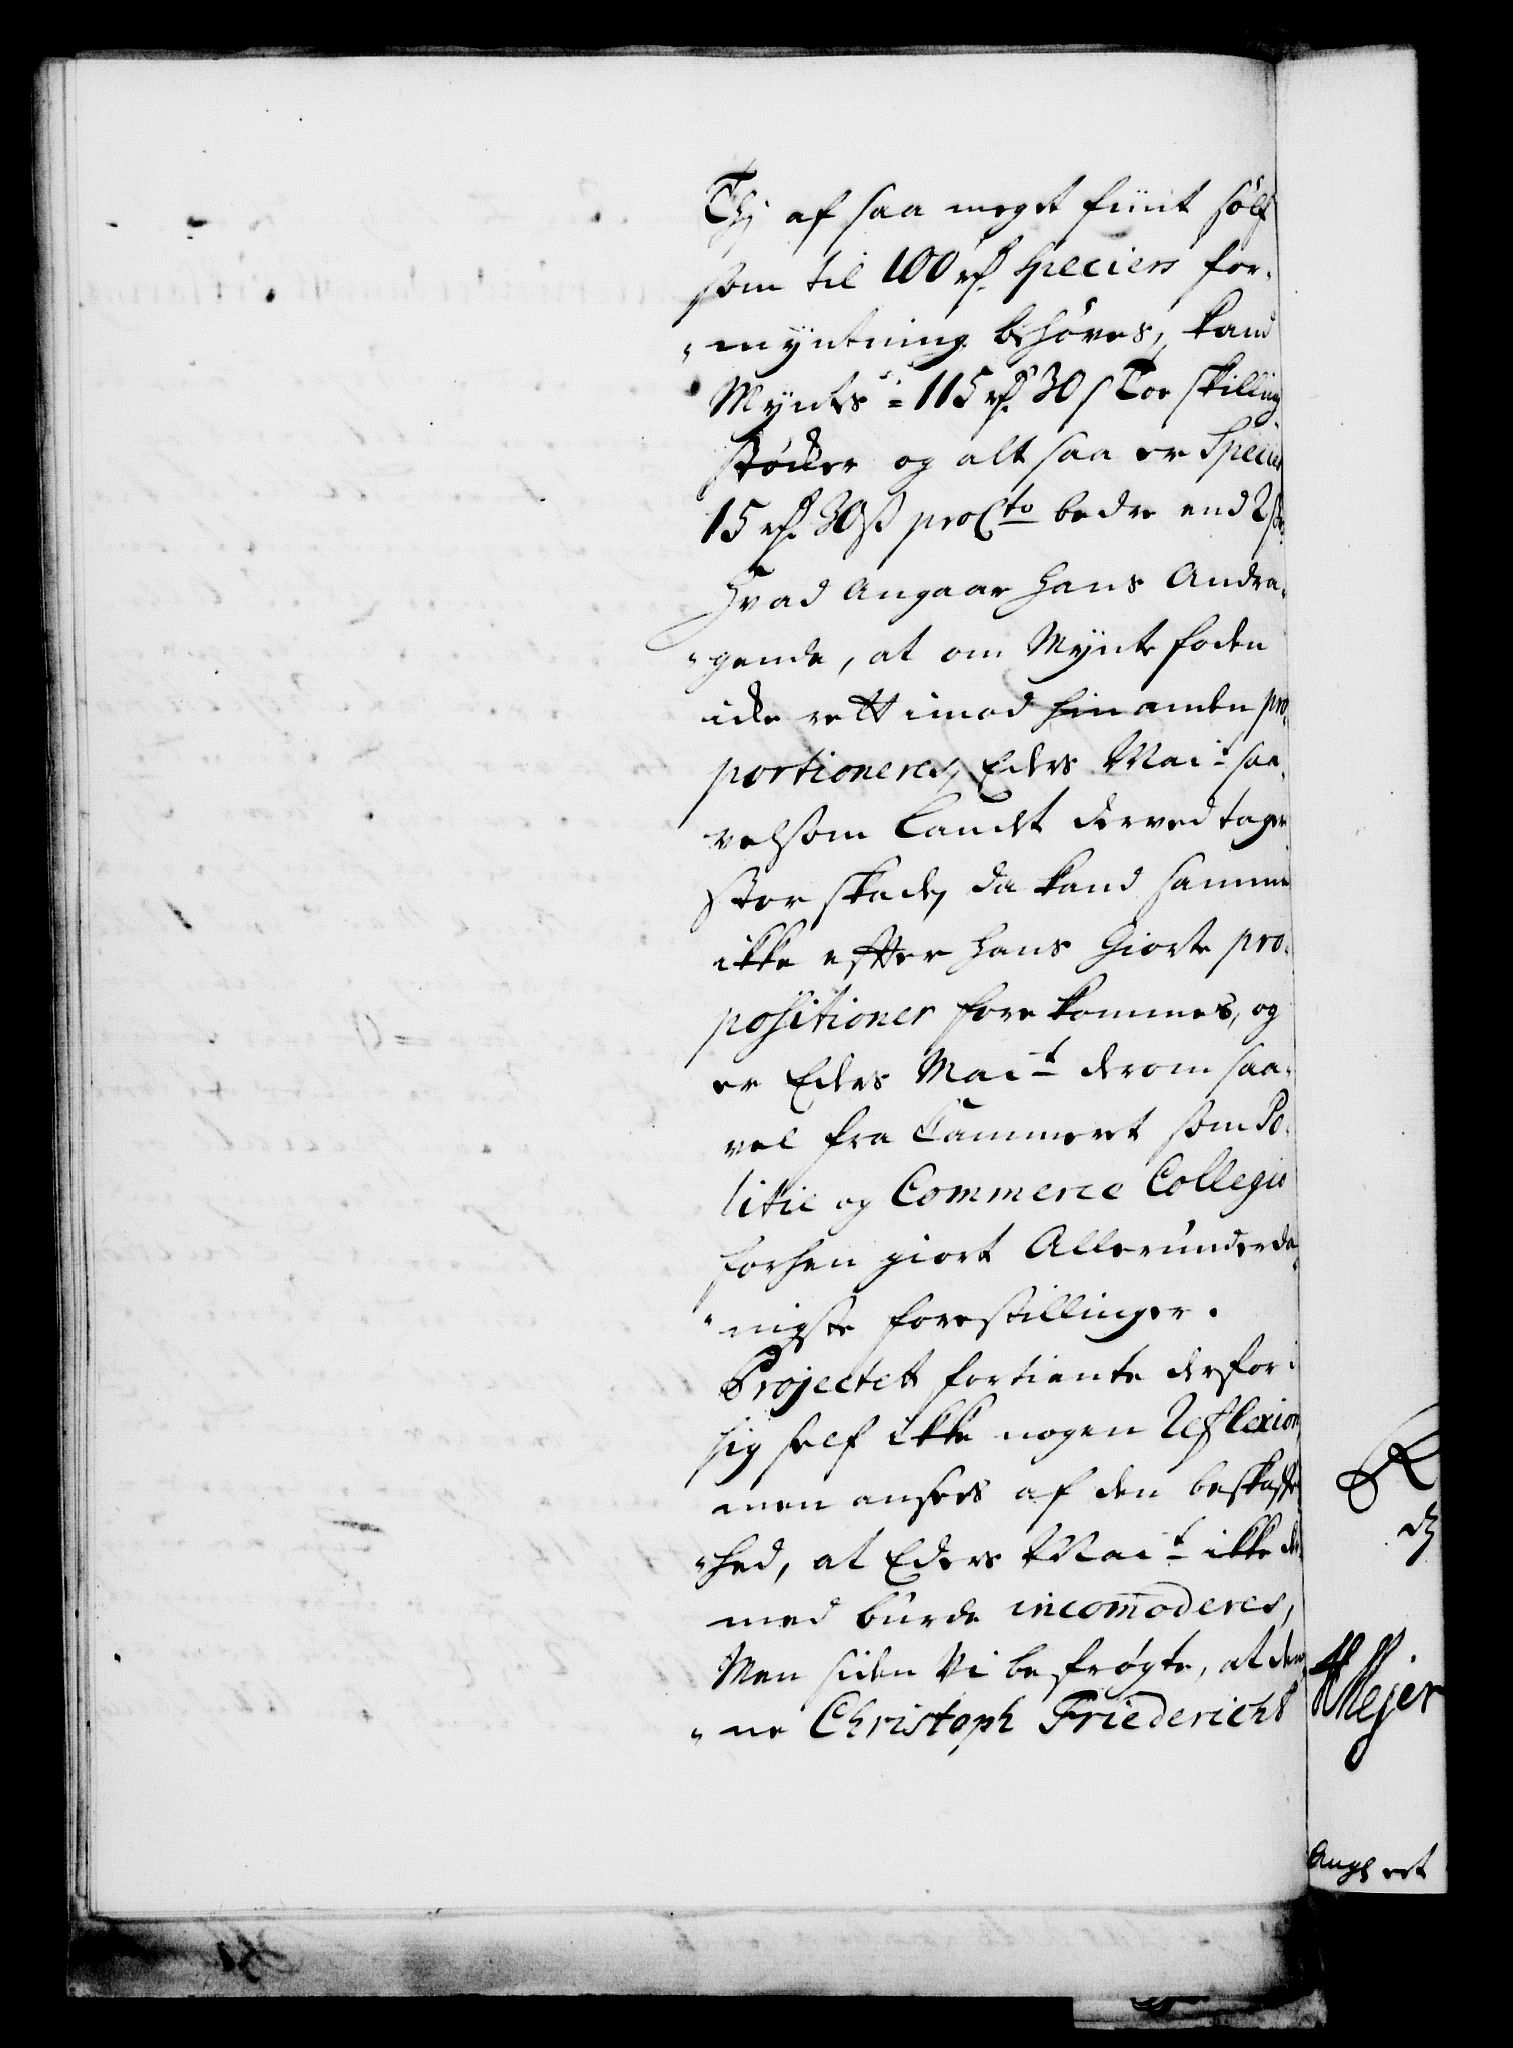 Thj af saa meget fiint sølf
som til 100 rd. Speciers for-
"myntning behøves, kand
Myntes = 115 rd. 30 s Toe skilling
støcker og altsaa er Specier
15 rd. 30 ß pro Cto bedre end 2 s
Hvad Angaar hans Andra-
"gende, at om Mynte foden
icke rett imod hinanden pro-
portioneres, Eders Mait saa-
velsom Landet derved tager
stor skade, da kand samme
ikke efter hans Giorte pro-
positioner forekommes, og
er Eders Mait derom saa-
vel fra Cammeret som Po-
litie og Commerce Collegie
forhen giort Allerunderda-
"nigste forestillinger.
Projectet fortiente derfor i
sig self ikke nogen Reflexion,
men ansees af den beskaffen-
"hed, at Eders Mait ikke der-
med burde incomoderes,
Men siden Vi befrygte, at den-
"ne Christoph Friederichs
Meyer